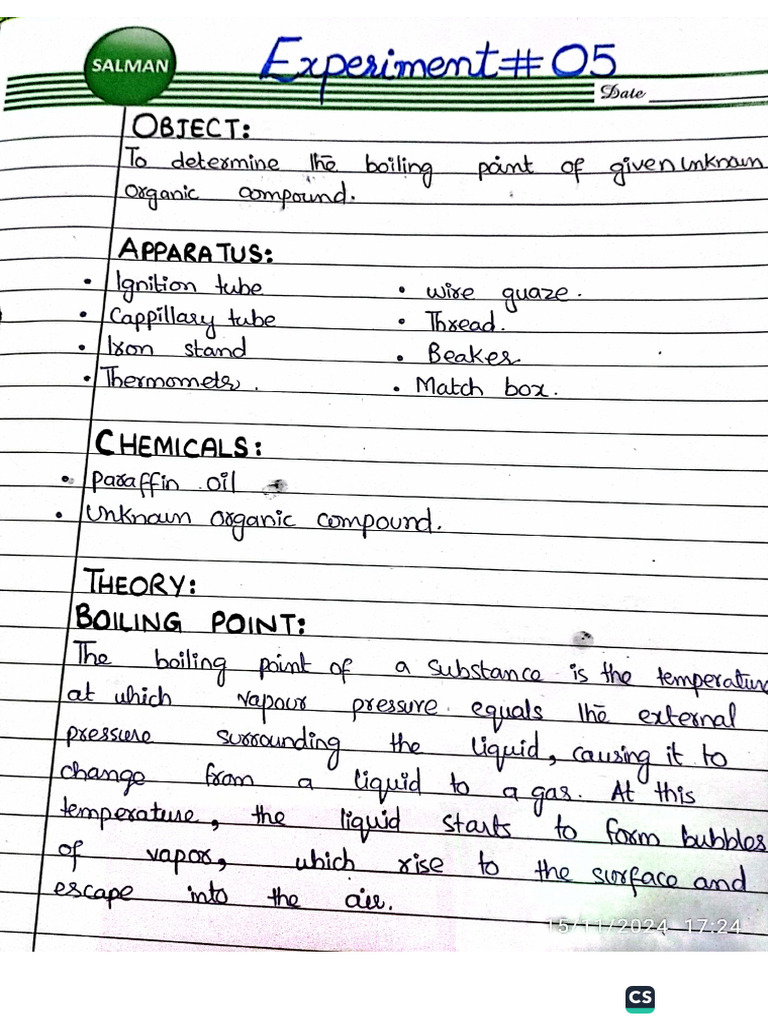 SALMAN
Experiment# 05
Date
OBJECT:
To determine the boiling point of given unknown
organic compound.
APPARATUS:
• Ignition tube
• wire guaze.
• Cappillary tube
• Thread.
• Iron stand
• Beaker
• Thermometer.
• Match box.
CHEMICALS:
• Paraffin oil
• Unknown organic compound.
THEORY:
BOILING POINT:
The boiling point of a substance is the temperature
at which vapour pressure equals the external
pressure surrounding the liquid, causing it to
change from a liquid to a gas. At this
temperature, the liquid starts to form bubbles
of vapor, which rise to the surface and
escape into the air.
15/11/2024 17:24
CS